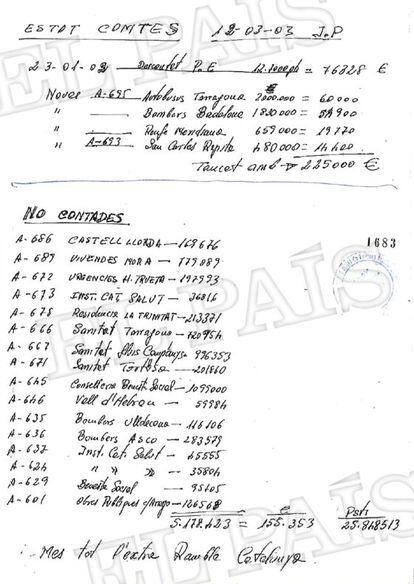 ESTAT COMTES 12-03-03 J.P
23-01-03 P.E = 76328 €
Noves A-695 Autobusos Tarragona 2000.000 = 60000
" Bombers Badalona 1.830.000 =
" 659000 = 19770
" A-693 San Carles Rapita 480000 = 14400
Tancat amb 225000 €
NO CONTADES
1683
A-686 CASTELL LLORDA — 169676
A-689 VIVENDES MORA — 779089
A-672 URGENCIES H. TRUETA — 197993
A-673 INST. CAT SALUT — 36816
A-678 Residencia LA TRINITAT — 213371
A-666 Sanitat Tarragona — 120954
A-667 Sanitat Lluis Companys 996353
A-671 Sanitat Tortosa — 201660
A-645 Conselleria Benestar Social — 1099000
A-646 Vall d'Hebron — 59984
A-635 Bombers Ulldecona — 116106
A-636 Bombers Asco — 283579
A-637 Inst. Cat. Salut — 45555
A-624 " " " — 35804
A-629 Benestar Social — 95105
A-601 Obres Publiques — 126568
€ Pts
5.178.423 = 155.353 25.848513
Mes tot l'extra Rambla Catalunya
EL PAÍS